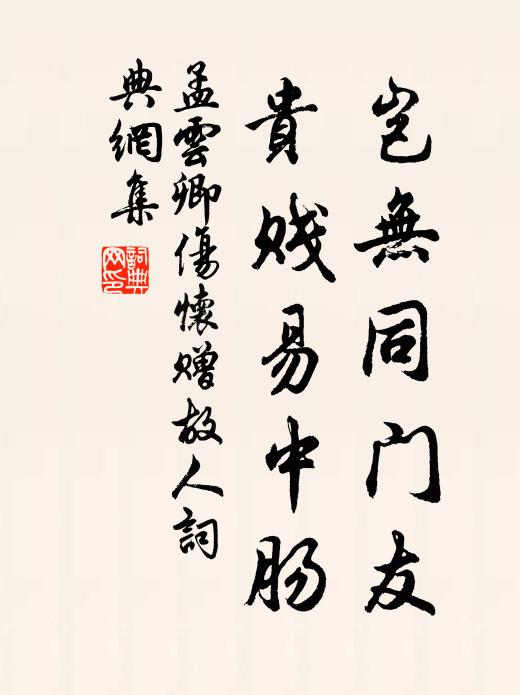 岂無同门友
貴贱易中肠
孟雲卿傷懷赠故人詞
典網集
詞典网印